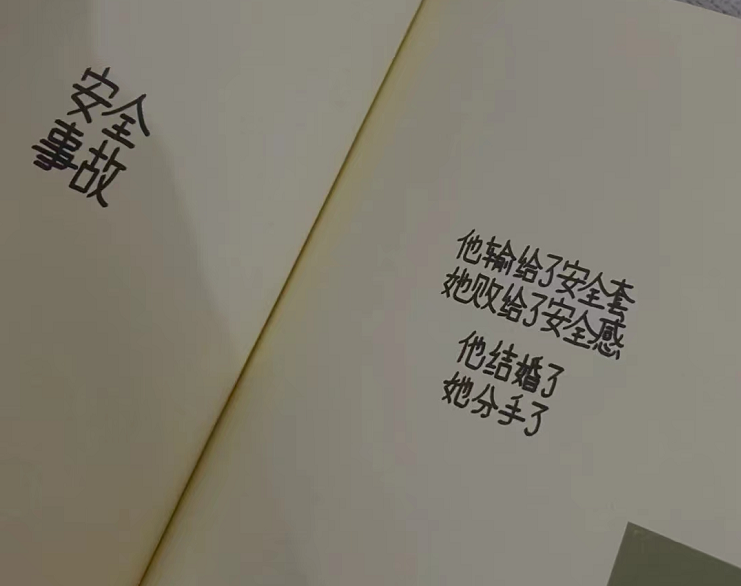 安全
事故
他输给了安全套
她败给了安全感
他结婚了
她分手了